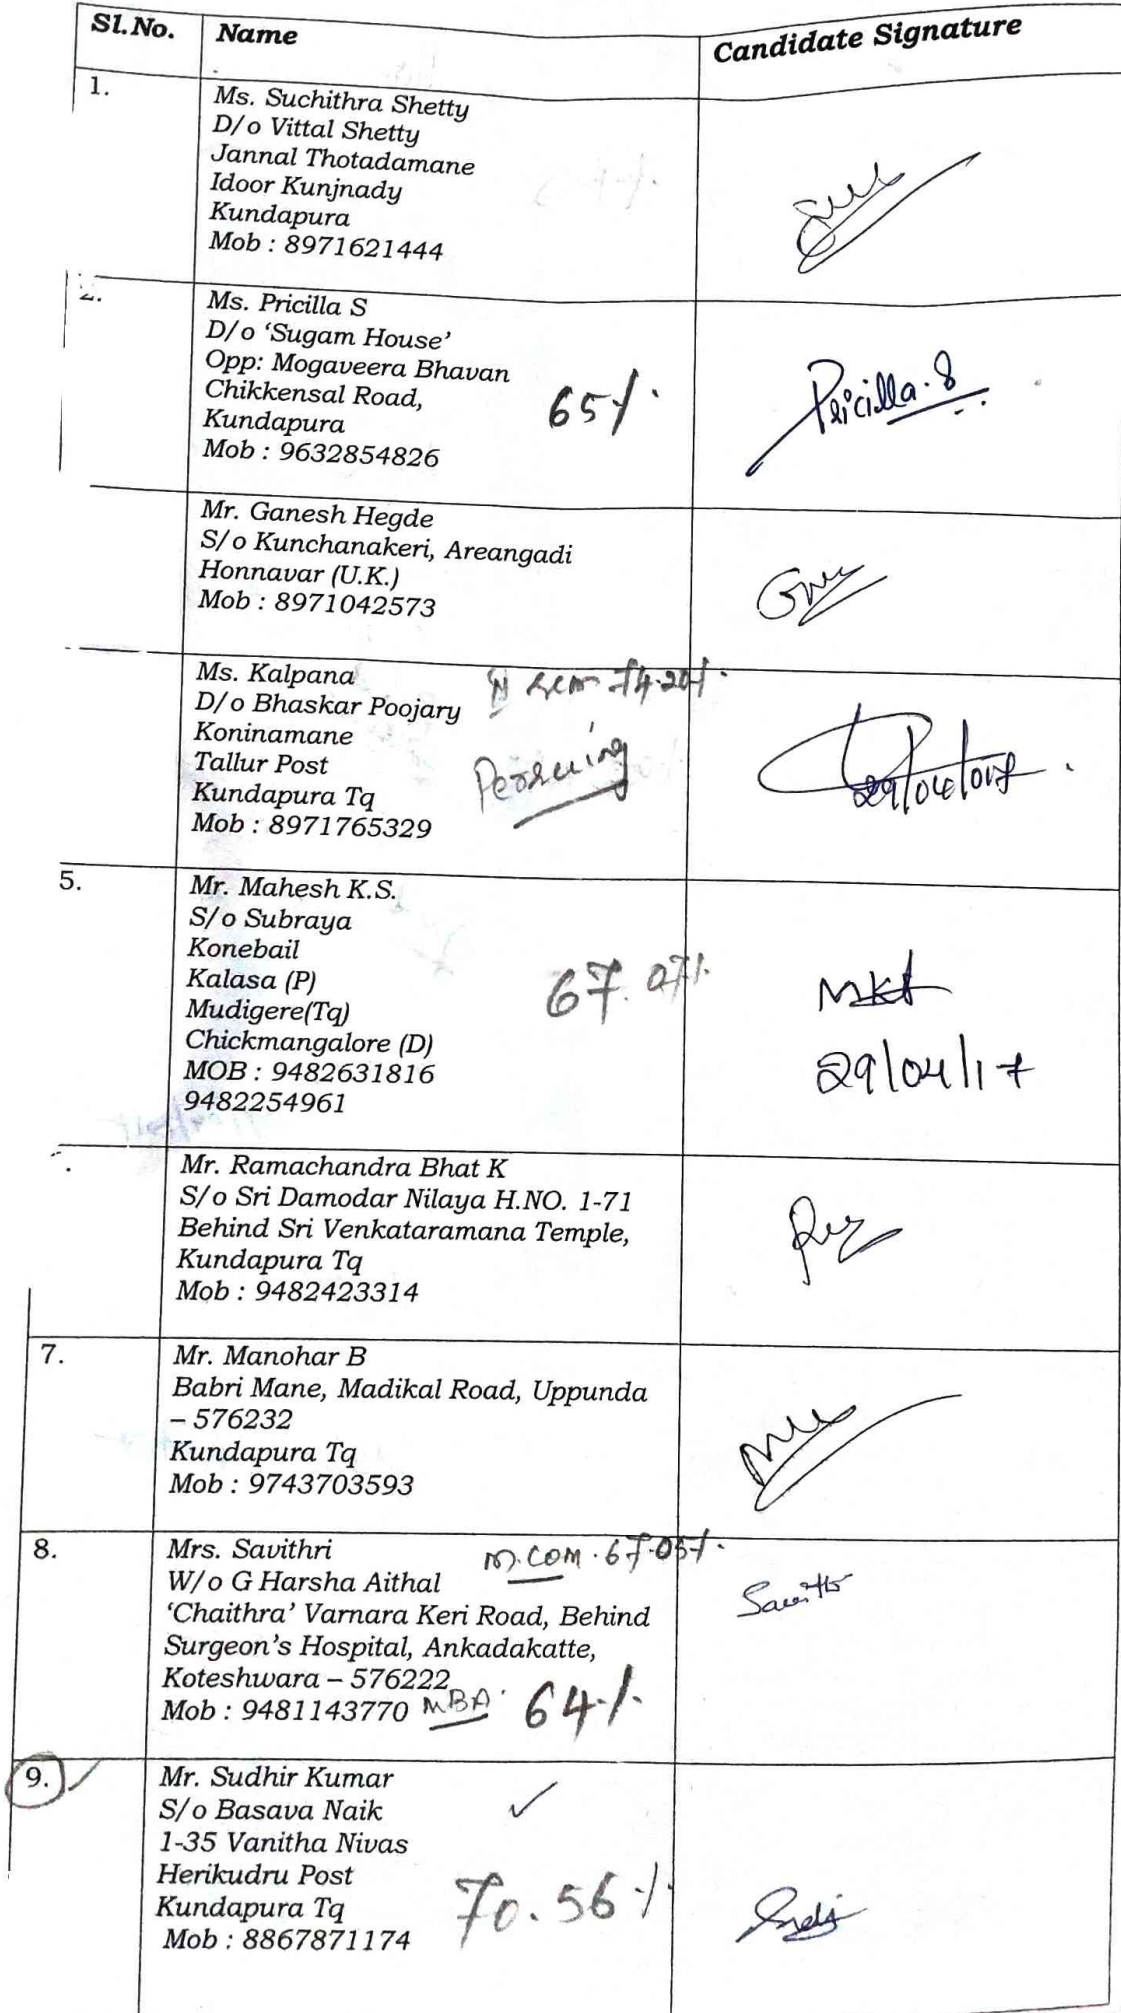 Sl.No. Name Candidate Signature
1.
Ms. Suchithra Shetty
D/o Vittal Shetty
Jannal Thotadamane
Idoor Kunjnady
Kundapura
Mob : 8971621444
2.
Ms. Pricilla S
D/o ‘Sugam House’
Opp: Mogaveera Bhavan
Chikkensal Road,
Kundapura
Mob : 9632854826
65%
Pricilla.S
Mr. Ganesh Hegde
S/o Kunchanakeri, Areangadi
Honnavar (U.K.)
Mob : 8971042573
Ms. Kalpana
D/o Bhaskar Poojary
Koninamane
Tallur Post
Kundapura Tq
Mob : 8971765329
sem 74.20%
Persuing
5.
Mr. Mahesh K.S.
S/o Subraya
Konebail
Kalasa (P)
Mudigere(Tq)
Chickmangalore (D)
MOB : 9482631816
9482254961
67.07%
29/04/17
Mr. Ramachandra Bhat K
S/o Sri Damodar Nilaya H.NO. 1-71
Behind Sri Venkataramana Temple,
Kundapura Tq
Mob : 9482423314
7.
Mr. Manohar B
Babri Mane, Madikal Road, Uppunda
– 576232
Kundapura Tq
Mob : 9743703593
8.
Mrs. Savithri
W/o G Harsha Aithal
‘Chaithra’ Varnara Keri Road, Behind
Surgeon’s Hospital, Ankadakatte,
Koteshwara – 576222
Mob : 9481143770
M.COM. 67.05%
MBA 64%
9.
Mr. Sudhir Kumar
S/o Basava Naik
1-35 Vanitha Nivas
Herikudru Post
Kundapura Tq
Mob : 8867871174
70.56%